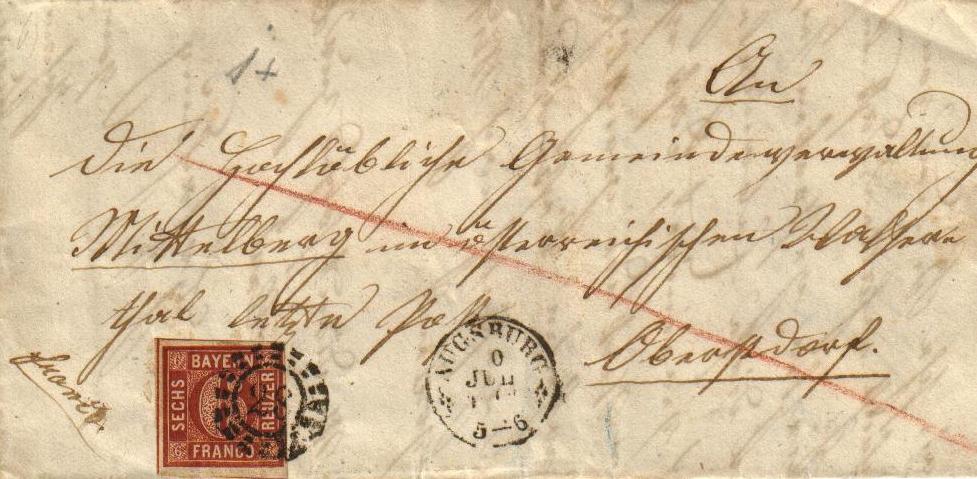 An
Die hochlöbliche Gemeindeverwaltung
Mittelberg im österreichischen Walser
thal letzte Post
Oberstdorf.
franco
BAYERN
SECHS
KREUZER
FRANCO
6
6
AUGSBURG
JULI
5-6